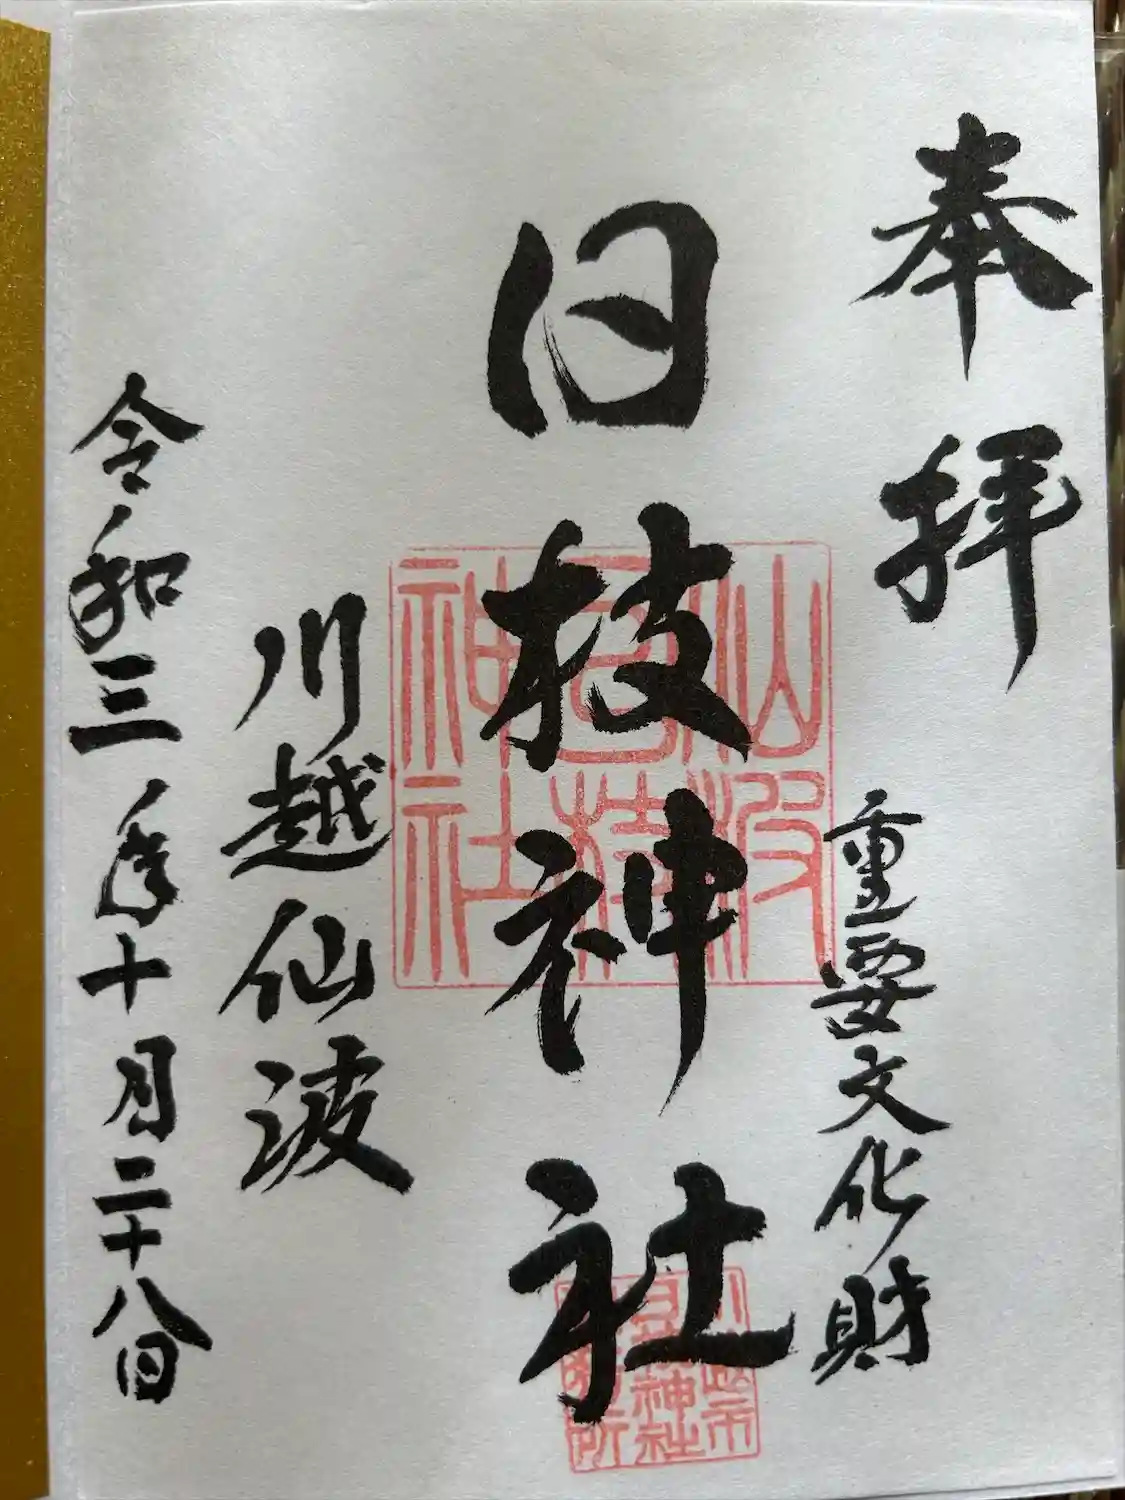 奉拝
重要文化財
日枝神社
川越仙波
令和三年十月二十八日
仙波
日枝
神社